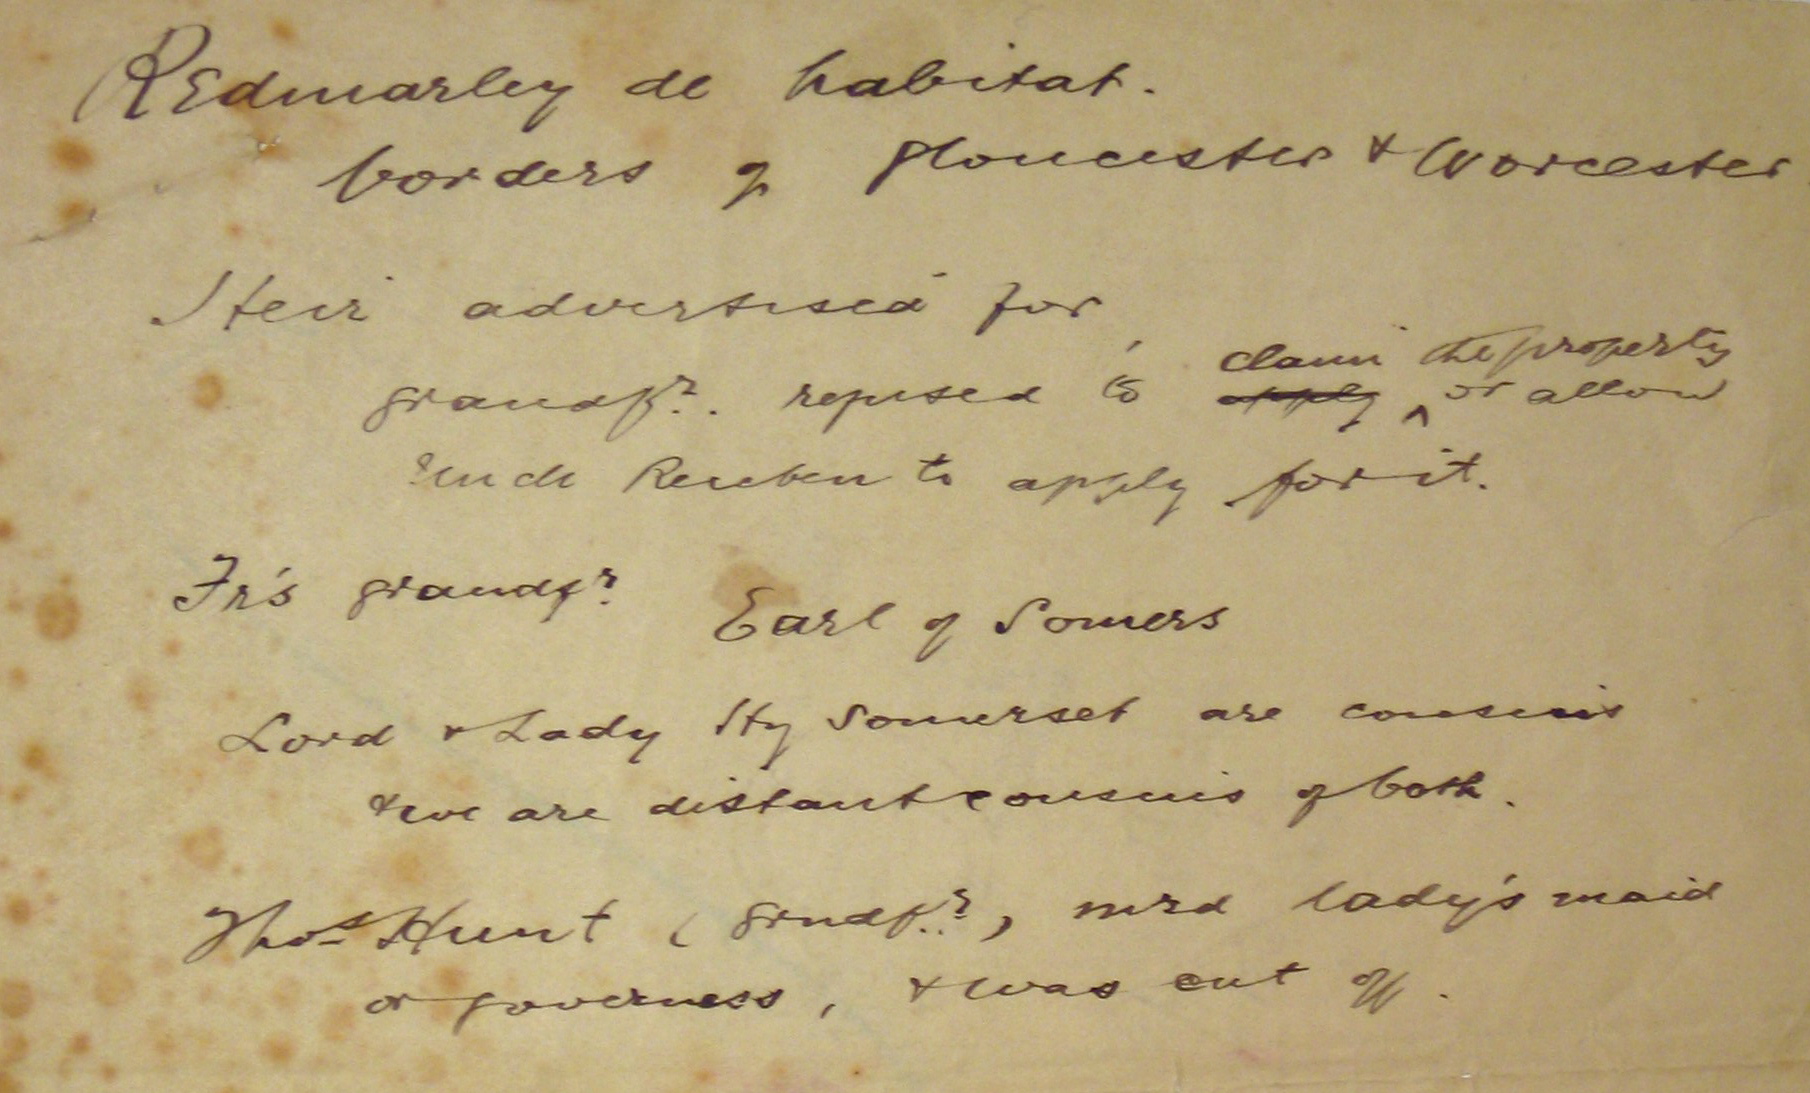 Redmarley de habitat.
borders of Gloucester & Worcester
Heir advertised for,
claim the property
grandfr. refused to apply ^ or allow
Uncle Reuben to apply for it.
Fr's grandfr Earl of Somers
Lord & Lady Hy Somerset are cousins
& we are distant cousins of both.
Thos Hunt (grndfr.), mrd lady's maid
or governess, & was cut off.